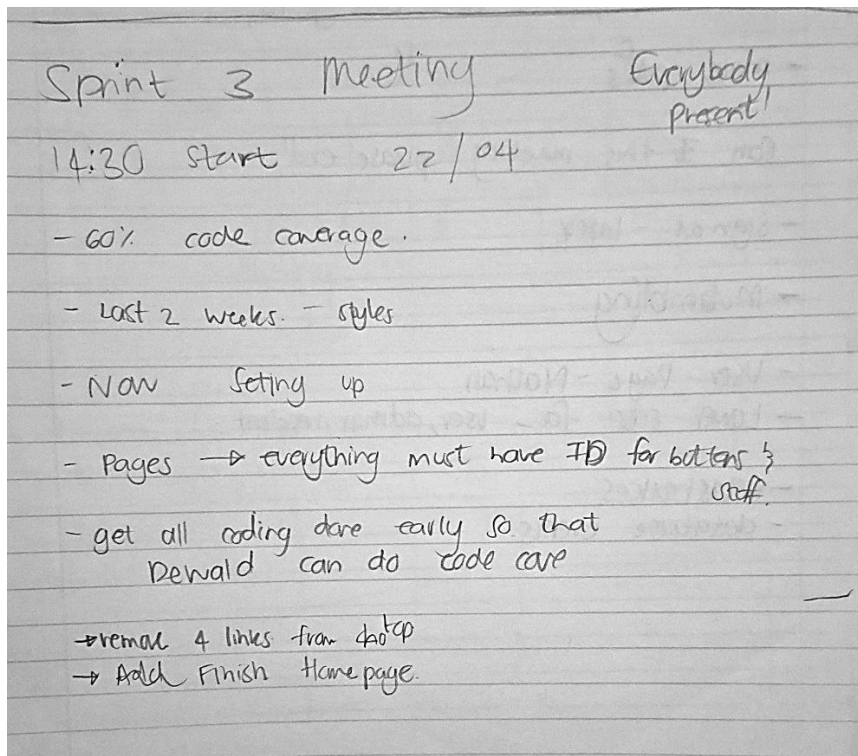 Sprint 3 Meeting
Everybody
Present!
14:30 Start 22/04
- 60% code coverage.
- Last 2 weeks. - styles
- Now Seting up
- Pages → everything must have ID for buttons &
stuff.
- get all coding done early so that
Dewald can do code cove
→ 4 links from
→ Finish Home page.